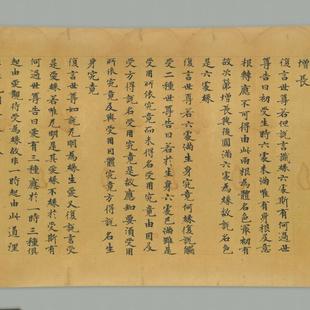 增長
復言世尊若但說言識緣六處斯有何過世
尊告曰初受生時六處未滿唯有身根及意
根轉應不可得由此兩根為體名色最初有
故次第增長與後圓滿六處為緣故說名色
是六處緣
復言世尊若六處滿生身究竟何緣復說觸
受二種世尊告曰若於生身六處已滿雖是
受用所依究竟而未得名受用究竟由因及
受方得說名受用究竟是故應知要須受用
所依究竟及與受用因體究竟方得說名生
身究竟
復言世尊如說無明為緣生愛又復說言受
是愛緣若唯無明是其愛緣不緣於受斯有
何過世尊告曰愛有三種應於一時三種俱
起由愛觀待受為緣故非一時起由此道理